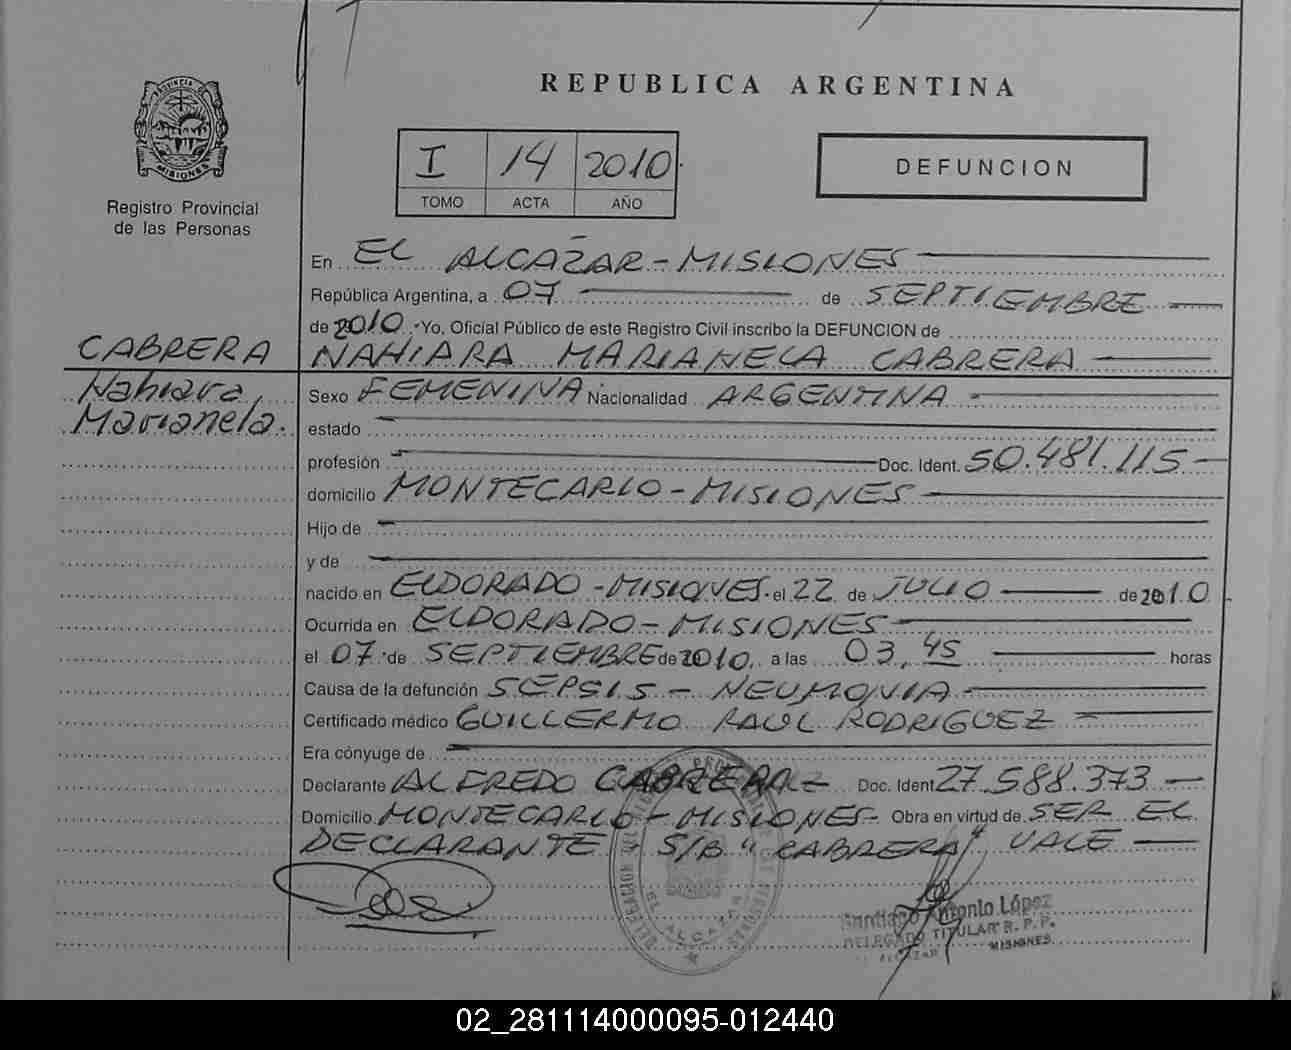 REPUBLICA ARGENTINA
PROVINCIA DE
MISIONES
Registro Provincial
de las Personas
I 14 2010
TOMO ACTA AÑO
DEFUNCION
En EL ALCAZAR - MISIONES
República Argentina, a 07 de SEPTIEMBRE
de 2010. Yo, Oficial Público de este Registro Civil inscribo la DEFUNCION de
CABRERA
Nahiara
Marianela.
NAHIARA MARIANELA CABRERA
Sexo FEMENINA Nacionalidad ARGENTINA
estado
profesión Doc. Ident. 50.481.115
domicilio MONTECARLO - MISIONES
Hijo de
y de
nacido en ELDORADO - MISIONES. el 22 de JULIO de 2010
Ocurrida en ELDORADO - MISIONES
el 07 de SEPTIEMBRE de 2010. a las 03,45 horas
Causa de la defunción SEPSIS - NEUMONIA
Certificado médico GUILLERMO RAUL RODRIGUEZ
Era cónyuge de
Declarante ALFREDO CABRERA Doc. Ident 27.588.373
Domicilio MONTECARLO - MISIONES - Obra en virtud de SER EL
DECLARANTE - S/B "CABRERA" VALE
EL ALCAZAR
Santiago Antonio López
DELEGADO TITULAR R. P. P.
ALCAZAR MISIONES
02_281114000095-012440